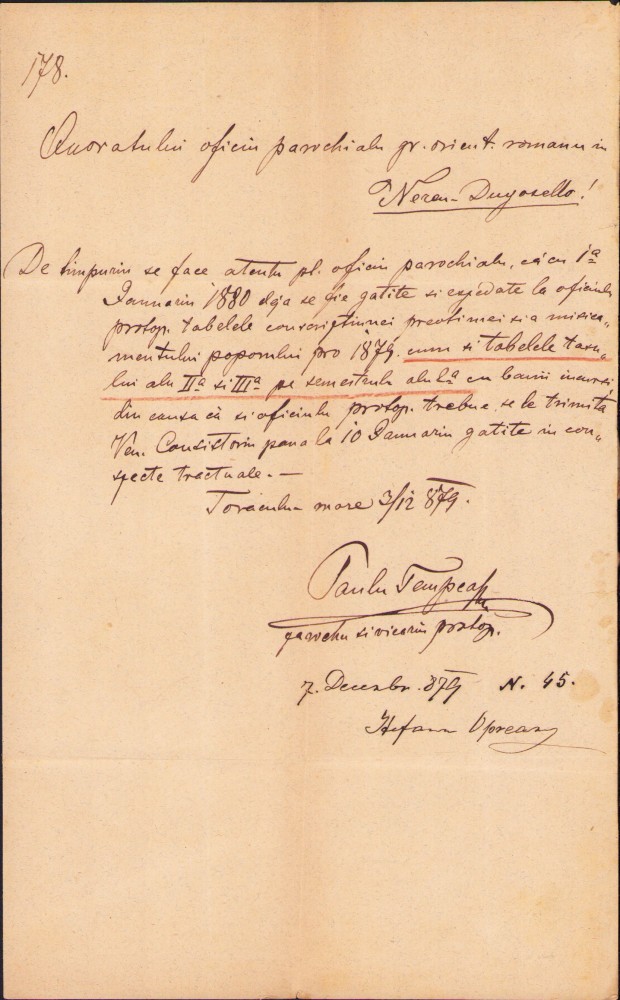 178.
Onoratului oficiu parochialu gr. orient. romanu in
Nereu-Dugosello!
De timpuriu se face atentu pl. oficiu parochialu, că cu 1ª
Januariu 1880 deja se fie gatite si espedate la oficiulu
protop. tabelele conscriptiunei preotimei si a misica„
mentului poporului pro 1879. cum si tabelele tasu„
lui alu IIª si IIIª pe semestrulu alu 2ª cu banii incursi
din causa că si oficiulu protop. trebue se le trimita
Ven. Consistoriu pana la 10 Januariu gatite in con„
specte tractuale. —
Toraculu mare 3/12 879.
Paulu Tempea
parochu si vicariu protop.
7. Decembr. 879 N. 45.
Stefanu Oprean